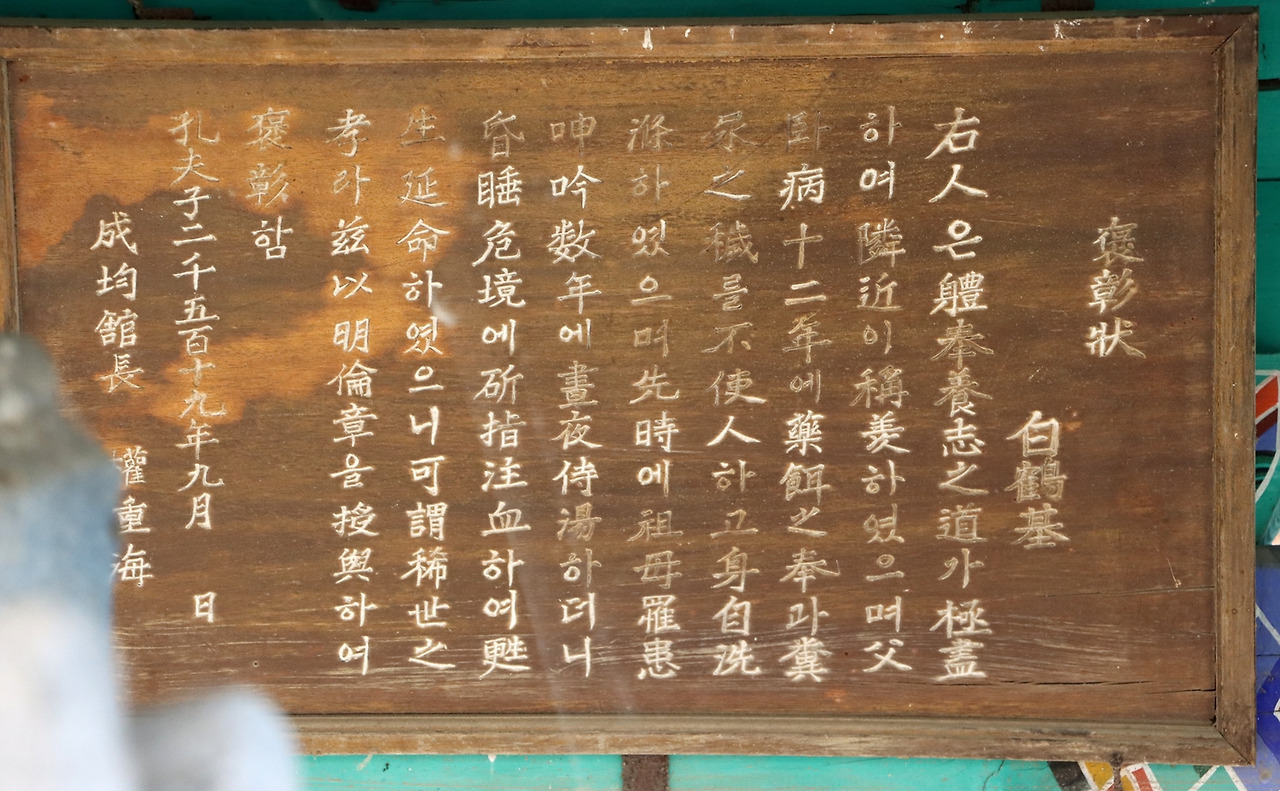 褒彰狀
白鶴基
右人은體奉養志之道가極盡
하여隣近이稱羨하였으며父
臥病十二年에藥餌之奉과糞
尿之穢를不使人하고身自洗
滌하였으며先時에祖母罹患
呻吟数年에晝夜侍湯하더니
昏睡危境에斫指注血하여甦
生延命하였으니可謂稀世之
孝라玆以明倫章을授與하여
褒彰함
孔夫子二千五百十九年九月 日
成均館長 權重海